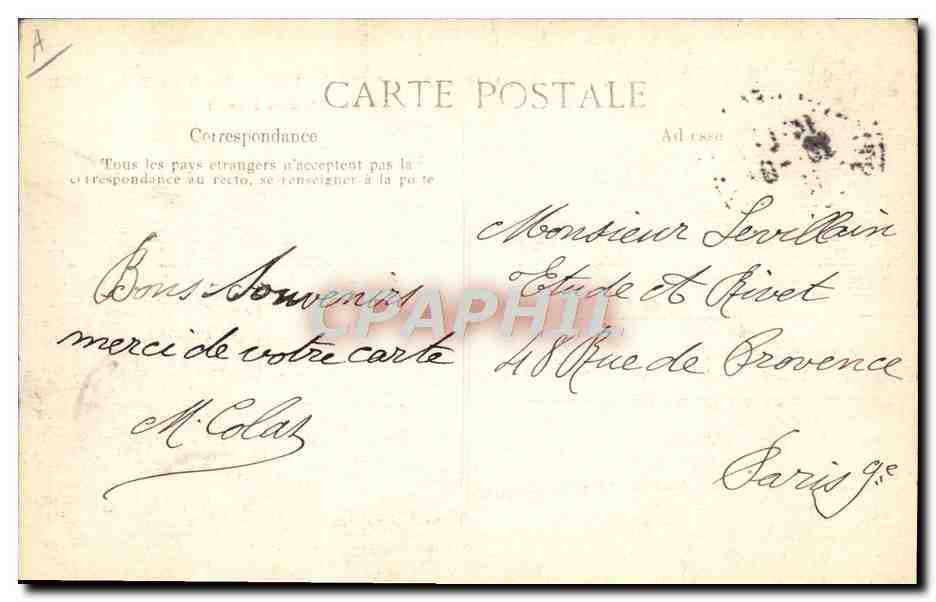 A
CARTE POSTALE
Correspondance
Tous les pays etrangers n'acceptent pas la
correspondance au recto, se renseigner à la poste
Adresse
Bons Souvenirs
merci de votre carte
M. Colas
Monsieur Levillain
Etude et Rivet
48 Rue de Provence
Paris 9e
CPAPHIL